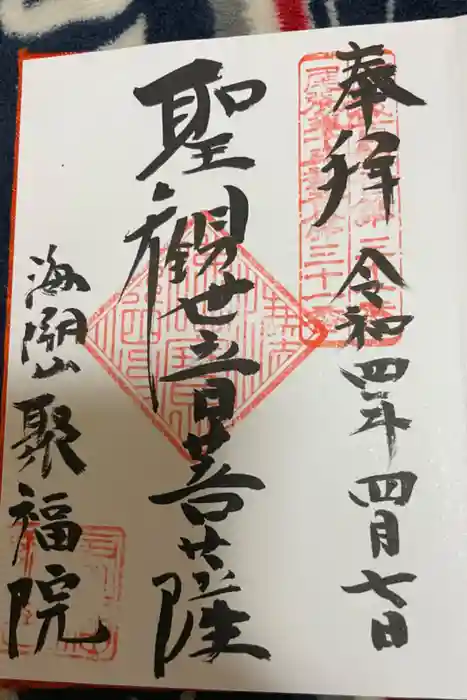 奉拝
令和四年四月七日
聖観世音菩薩
海開山聚福院